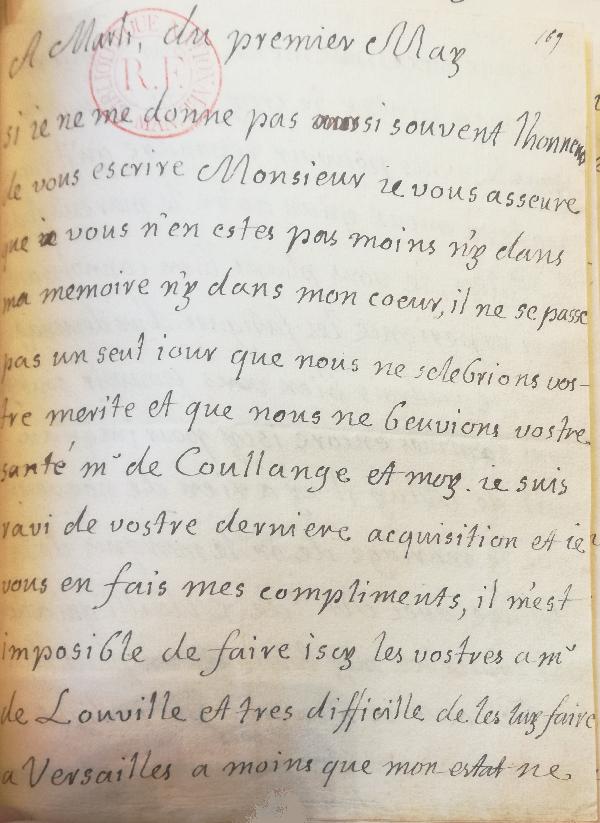 A Marli, du premier May
169
si ie ne me donne pas aussi souvent lhonneur
de vous escrire Monsieur ie vous asseure
que ie vous n'en estes pas moins n'y dans
ma memoire n'y dans mon coeur, il ne se passe
pas un seul iour que nous ne selebrions vos-
tre merite et que nous ne beuvions vostre
santé mr de Coullange et moy. ie suis
ravi de vostre derniere acquisition et ie
vous en fais mes compliments, il m'est
imposible de faire iscy les vostres a mr
de Louville et tres difficille de les luy faire
a Versailles a moins que mon estat ne
R.F.